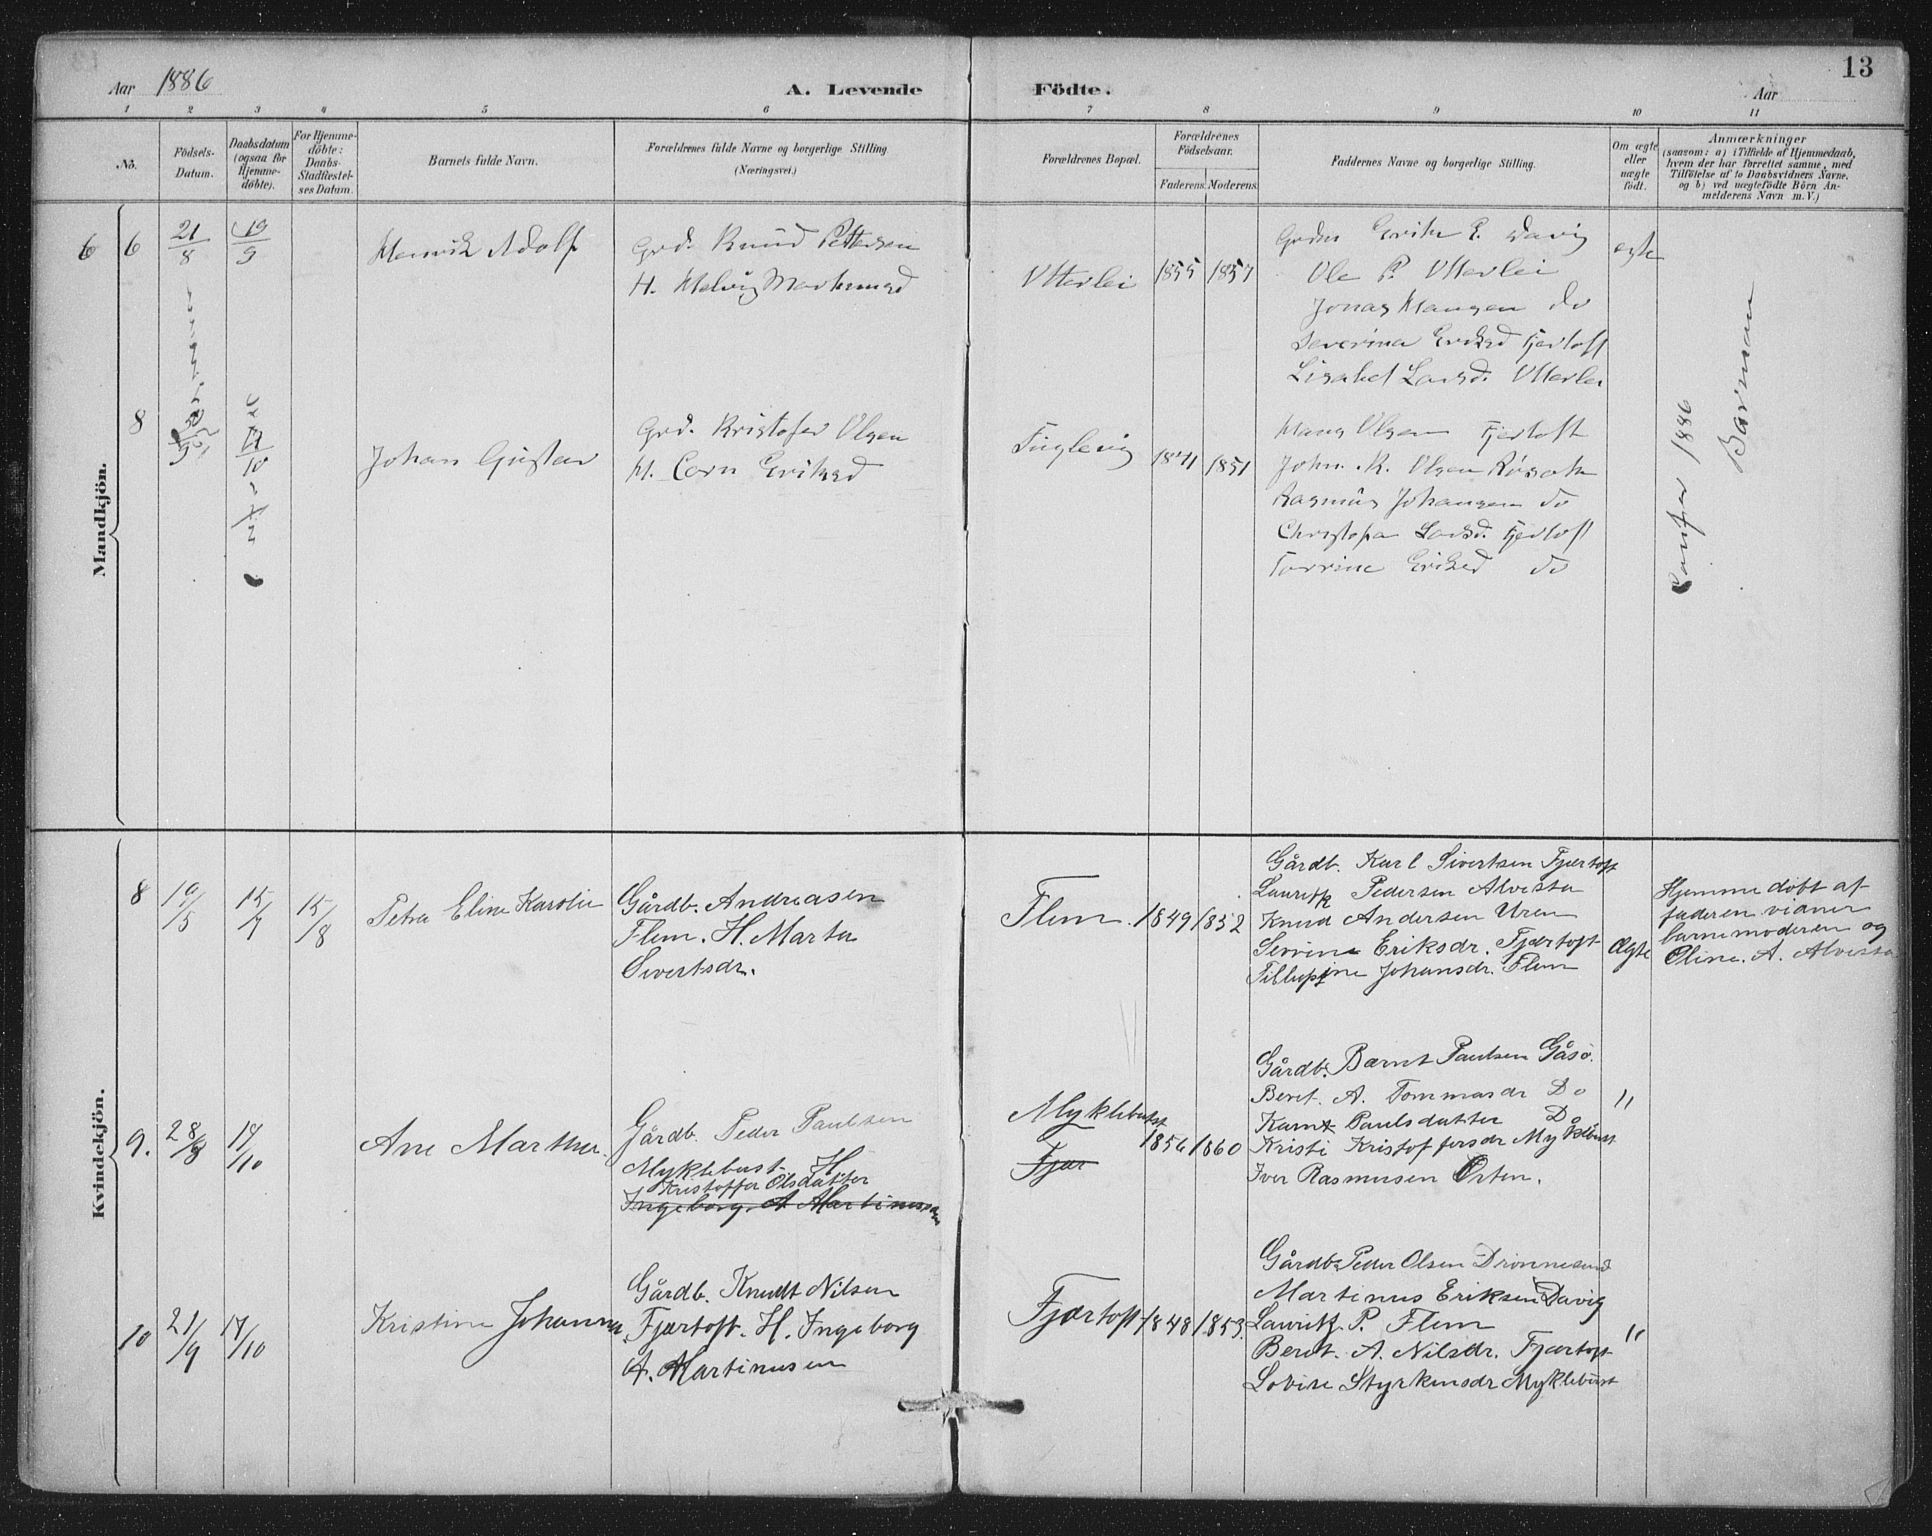 13
Aar 1886 A. Levende Födte. Aar
1 2 3 4 5 6 7 8 9 10 11
No. Födsels-Datum. Daabsdatum (ogsaa for Hjemme-døbte). For Hjemme-döbte: Daabs-Stadfæstel-ses Datum. Barnets fulde Navn. Forældrenes fulde Navne og borgerlige Stilling (Næringsvei.) Forældrenes Bopæl. Forældrenes Födselsaar. Faderens. Moderens. Faddernes Navne og borgerlige Stilling. Om ægte eller uægte født. Anmærkninger (saasom: a) i Tilfælde af Hjemmedaab, hvem der har forrettet samme, med Tilföielse af to Daabsvidners Navne. og b) ved uægtefödte Börn An-melderens Navn m.V.)
Mandkjön.
6 6 21/8 19/9 Henrik Adolf Grd. Knud Pettersen
H. Helvig
Utterlei 1855 1857
E. Davig
Ole P. Utterlei
Jonas Hansen do
Severina Eriksd Fjertoft
Lisabet Larsd. Utterlei
ægte
8 Johan Gustav Grd. Kristofer Olsen
H. Eriksd
Fuglevig 1851
Hans Olsen Fjertoft
John. K. Olsen
Rasmus Johansen do
Larsd. Fjertoft
Eriksd do
1886
Kvindekjön.
8 10/5 15/7 15/8 Petra Eline Karolie Gårdb. Andreasen
Flem. H. Marta
Sivertsdr.
Flem. 1849 1852
Gårdb. Karl Sivertsen Fjærtoft
Lauritz Pedersen Alvesta
Knud Andersen Uren
Eriksdr. Fjærtoft
Johansdr. Flem
Ægte
Hjemmedøbt af
faderen vidner
barnemoderen og
Oline. A. Alvesta
9. 28/8 17/10 Ane Marthea. Gårdb. Peder Paulsen
Myklebust H
Kristoffer Olsdatter
Ingeborg. A Martinusen
Myklebust
Fjær
1856 1860
Gårdb. Bernt Paulsen Gåsö.
Beret. A. Tommasdr Do
Paulsdatter Do
Kristi Kristoffersdr Myklebust
Iver Rasmusen Orten.
"
10 21/9 17/10 Kristine Johanna Gårdb. Knudt Nilsen
Fjærtoft. H. Ingeborg
A. Martinusen
Fjærtoft 1848 1853.
Gårdb. Peder Olsen Dronnesund
Martinus Eriksen Davig
Lauritz P. Flem
Beret. A. Nilsdr. Fjærtoft
Lovise Styrkersdr Myklebust
"